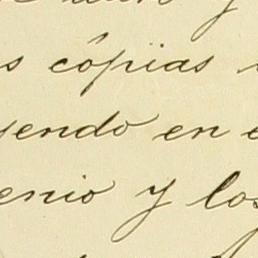 s cópias
yendo en e
enio y los